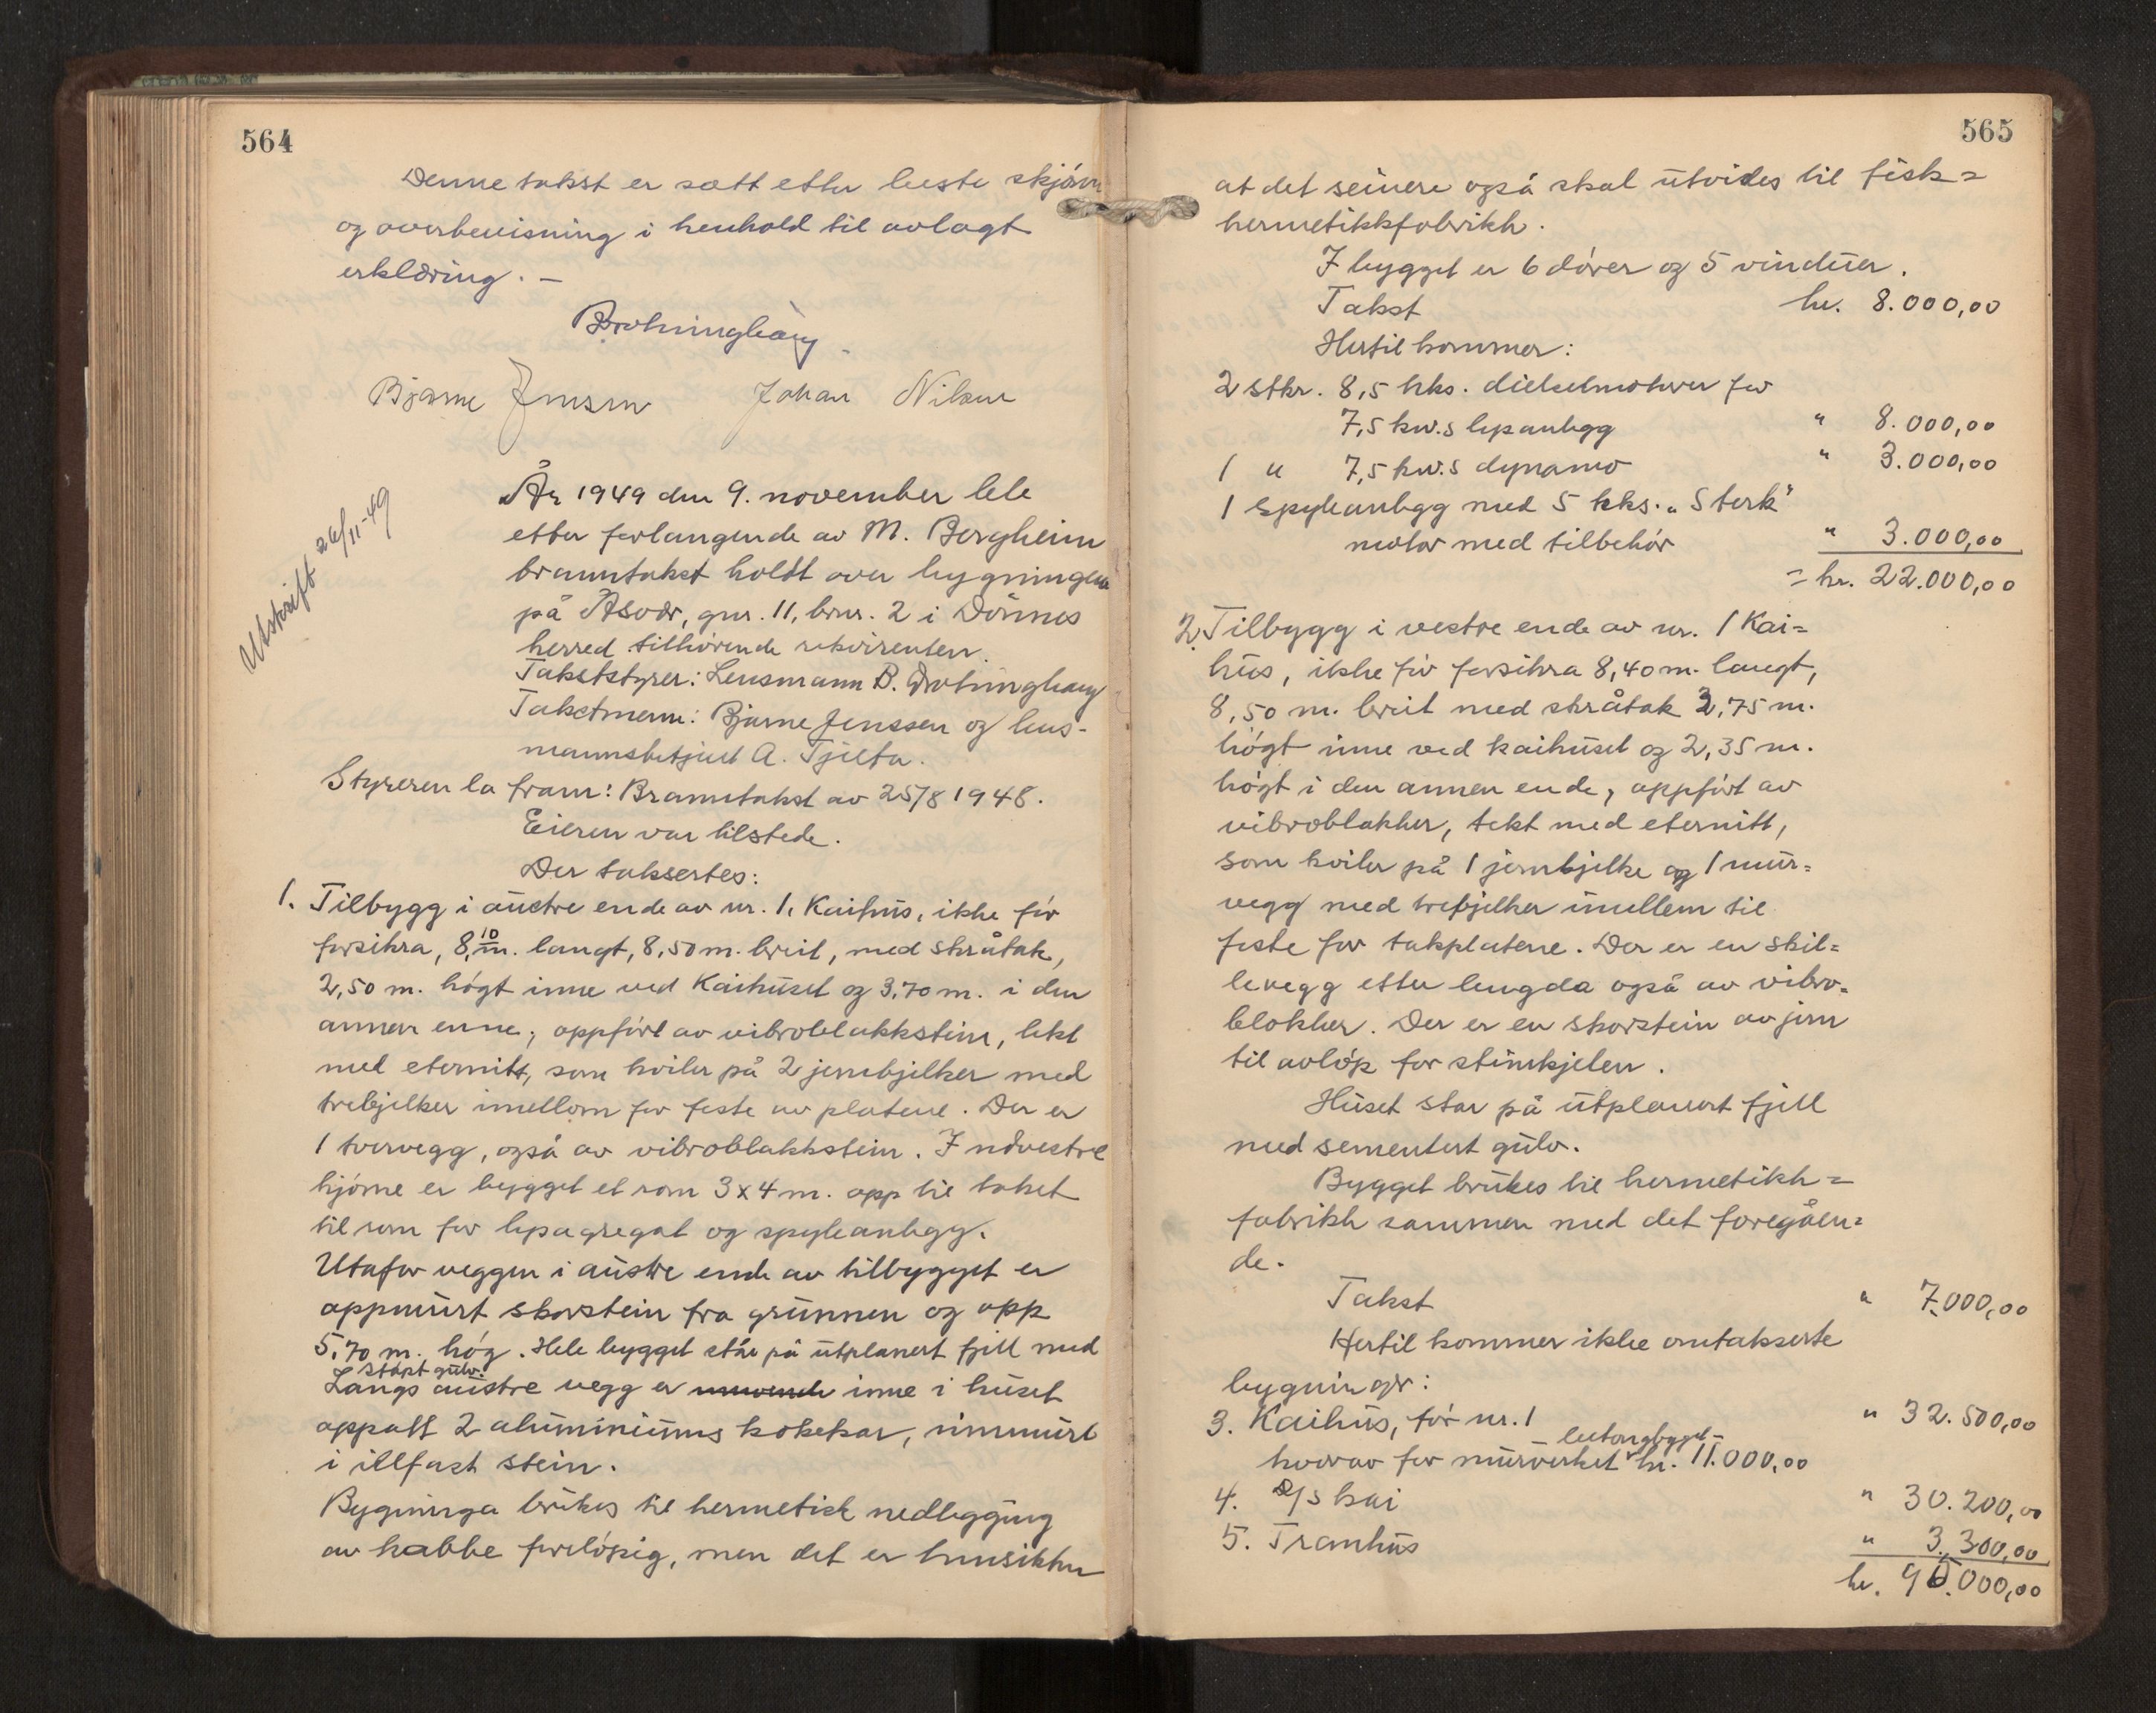 564
Denne takst er satt etter beste skjønn
og overbevisning i henhold til avlagt
erklæring. –
Bjarne Jensen Johan Nilsen
Utskrift 26/11-49
År 1949 den 9. november ble
etter forlangende av M. Bergheim
branntakst holdt over bygningene
på Åsvær, gnr. 11, brnr. 2 i Dønnes
herred tilhørende rekvirenten.
Takststyrer: Lensmann B.
Takstmenn: Bjarne Jenssen og lens-
mannsbetjent A. Tjelta.
Styreren la fram: Branntakst av 25/8 1948.
Eieren var tilstede.
Der taksertes:
1. Tilbygg i austre ende av nr. 1, Kaihus, ikke før
forsikra, 8,10 m. langt, 8,50 m. breit, med skråtak,
2,50 m. høgt inne ved Kaihuset og 3,70 m. i den
annen enne, oppført av vibroblokkstein, tekt
med eternitt, som hviler på 2 jernbjelker med
trebjelker imellom for feste av platene. Der er
1 tvervegg, også av vibroblokkstein. I ndvestre
hjørne er bygget et rom 3x4 m. opp til taket
til rom for lysagregat og spyleanlegg.
Utafor veggen i austre ende av tilbygget er
oppmurt skorstein fra grunnen og opp
5,70 m. høg. Hele bygget står på utplanert fjell med
støpt gulv.
Langs austre vegg er inne i huset
oppsatt 2 aluminiums kokekar, innmurt
i illfast stein.
Bygninga brukes til hermetisk nedlegging
av krabbe foreløpig, men det er hensikten
565
at det seinere også skal utvides til fisk=
hermetikkfabrikk.
I bygget er 6 dører og 5 vinduer.
Takst kr. 8.000,00
Hertil kommer:
2 stkr. 8,5 hks. dieselmotorer for
7,5 kw.s lysanlegg " 8.000,00
1 " 7,5 kw.s dynamo " 3.000,00
1 spyleanlegg med 5 hks. "Sterk"
motor med tilbehør " 3.000,00
= kr. 22.000,00
2. Tilbygg i vestre ende av nr. 1 Kai=
hus, ikke før forsikra 8,40 m. langt,
8,50 m. breit med skråtak 3,75 m.
høgt inne ved kaihuset og 2,35 m.
høgt i den annen ende, oppført av
vibroblokker, tekt med eternitt,
som hviler på 1 jernbjelke og 1 mur=
vegg med trebjelker imellem til
feste for takplatene. Der er en skil=
levegg etter lengda også av vibro=
blokker. Der er en skorstein av jern
til avløp for stimkjelen.
Huset står på utplanert fjell
med sementert gulv.
Bygget brukes til hermetikk=
fabrikk sammen med det foregåen=
de.
Takst " 7.000,00
Hertil kommer ikke omtakserte
bygninger:
3. Kaihus, før nr. 1 " 32.500,00
hvorav for murverket kr. 11.000,00
4. D/s kai " 30.200,00
5. Tranhus " 3.300,00
kr. 95.000,00